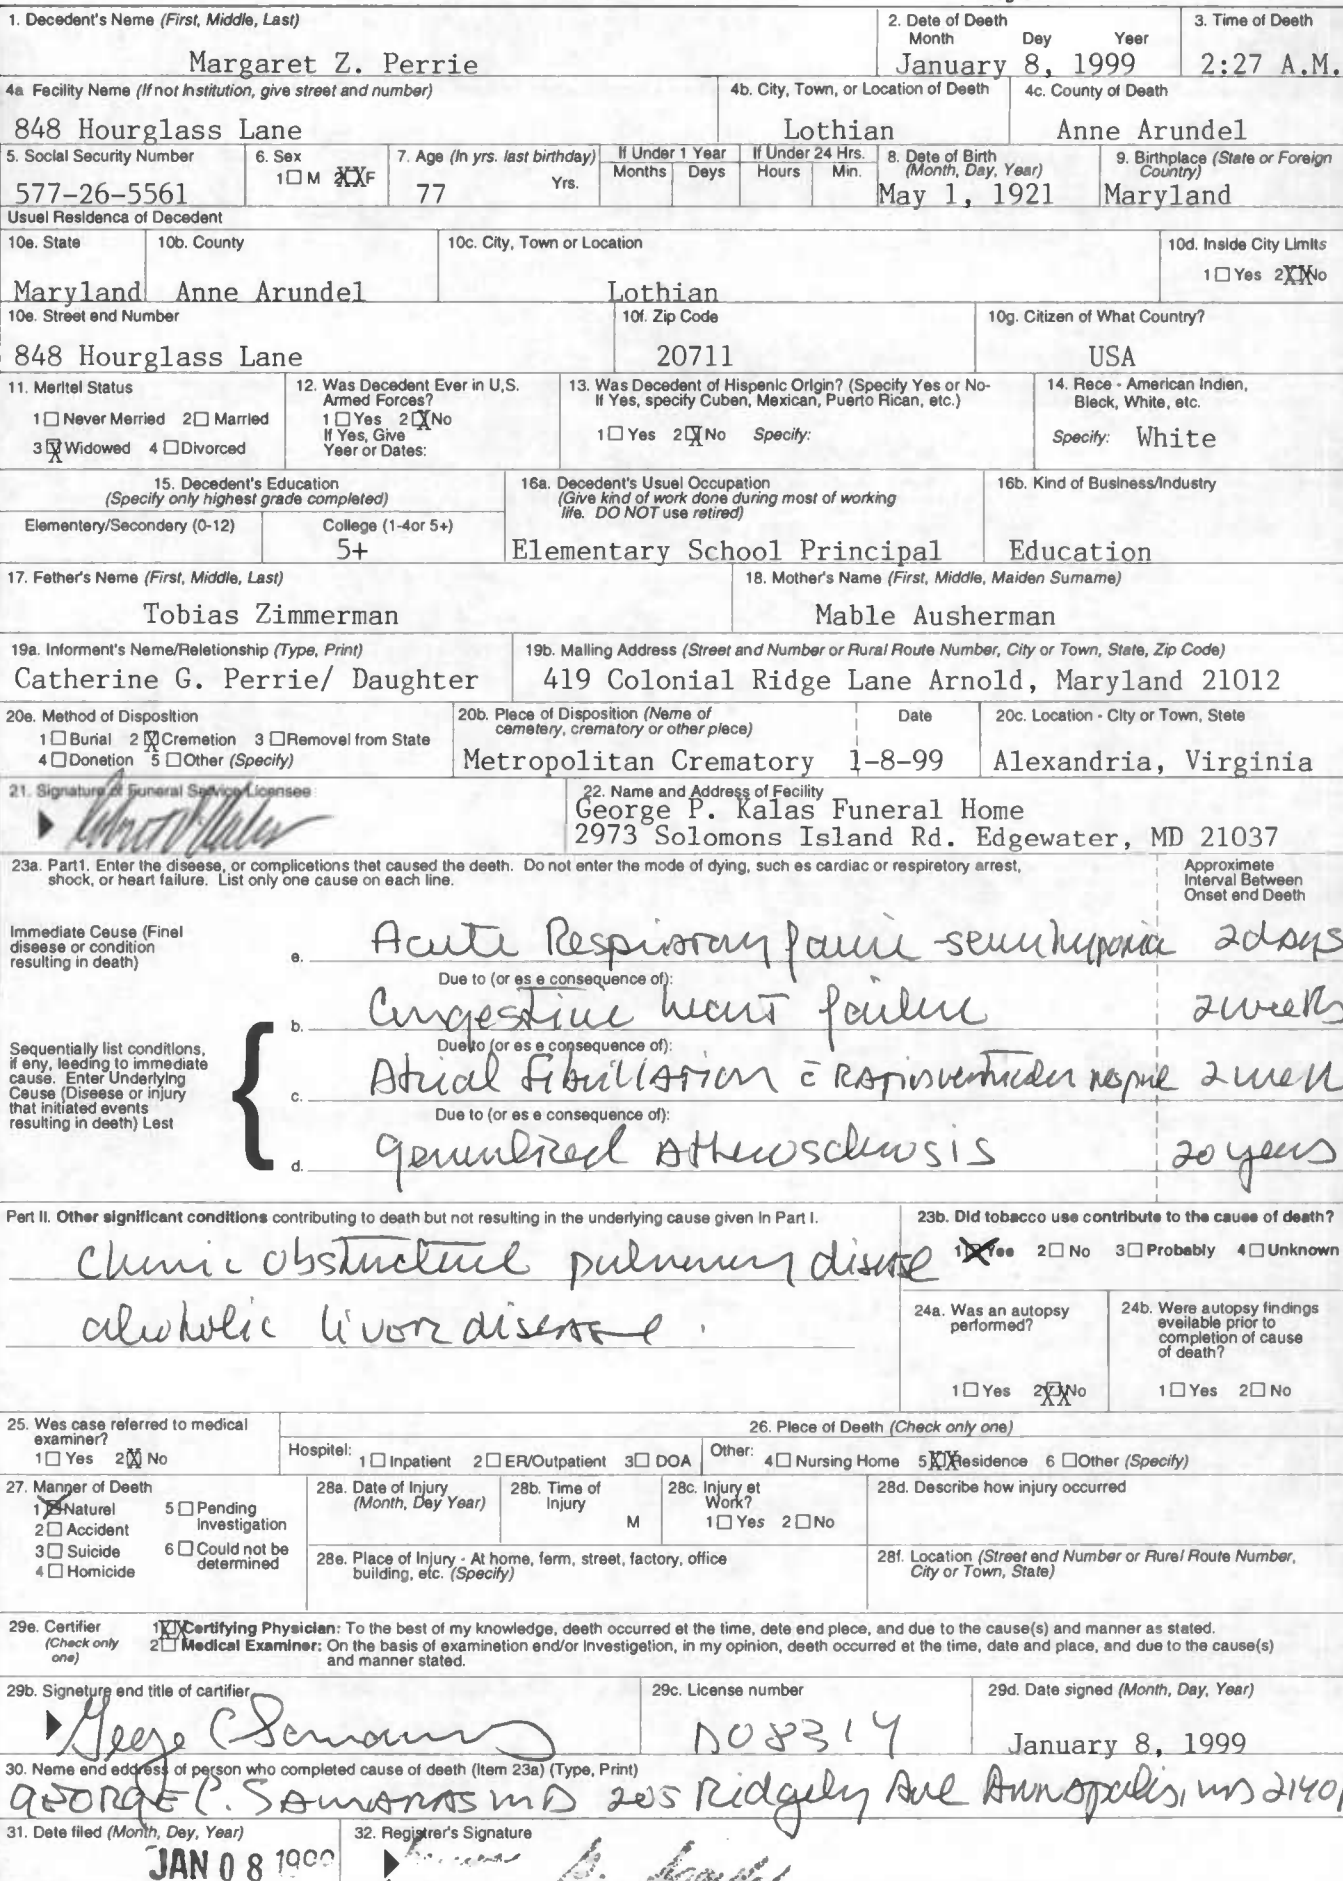 1. Decedent's Name (First, Middle, Last)
2. Date of Death
Month Day Year
3. Time of Death
Margaret Z. Perrie
January 8, 1999
2:27 A.M.
4a Facility Name (If not Institution, give street and number)
4b. City, Town, or Location of Death
4c. County of Death
848 Hourglass Lane
Lothian
Anne Arundel
5. Social Security Number
6. Sex
1☐ M 2XXF
7. Age (In yrs. last birthday)
Yrs.
If Under 1 Year
Months Days
If Under 24 Hrs.
Hours Min.
8. Date of Birth
(Month, Day, Year)
9. Birthplace (State or Foreign
Country)
577-26-5561
77
May 1, 1921
Maryland
Usual Residence of Decedent
10a. State
10b. County
10c. City, Town or Location
10d. Inside City Limits
1☐ Yes 2XXNo
Maryland
Anne Arundel
Lothian
10e. Street and Number
10f. Zip Code
10g. Citizen of What Country?
848 Hourglass Lane
20711
USA
11. Marital Status
1☐ Never Married 2☐ Married
3☒Widowed 4☐Divorced
12. Was Decedent Ever in U.S.
Armed Forces?
1☐Yes 2☒No
If Yes, Give
Year or Dates:
13. Was Decedent of Hispanic Origin? (Specify Yes or No-
If Yes, specify Cuban, Mexican, Puerto Rican, etc.)
1☐Yes 2☒No Specify:
14. Race - American Indian,
Black, White, etc.
Specify: White
15. Decedent's Education
(Specify only highest grade completed)
Elementary/Secondary (0-12)
College (1-4or 5+)
5+
16a. Decedent's Usual Occupation
(Give kind of work done during most of working
life. DO NOT use retired)
Elementary School Principal
16b. Kind of Business/Industry
Education
17. Father's Name (First, Middle, Last)
18. Mother's Name (First, Middle, Maiden Surname)
Tobias Zimmerman
Mable Ausherman
19a. Informant's Name/Relationship (Type, Print)
19b. Mailing Address (Street and Number or Rural Route Number, City or Town, State, Zip Code)
Catherine G. Perrie/ Daughter
419 Colonial Ridge Lane Arnold, Maryland 21012
20a. Method of Disposition
1☐Burial 2☒Cremation 3☐Removal from State
4☐Donation 5☐Other (Specify)
20b. Place of Disposition (Name of
cemetery, crematory or other place)
Date
20c. Location - City or Town, State
Metropolitan Crematory 1-8-99
Alexandria, Virginia
21. Signature of Funeral Service Licensee
22. Name and Address of Facility
George P. Kalas Funeral Home
2973 Solomons Island Rd. Edgewater, MD 21037
23a. Part1. Enter the disease, or complications that caused the death. Do not enter the mode of dying, such as cardiac or respiratory arrest,
shock, or heart failure. List only one cause on each line.
Approximate
Interval Between
Onset and Death
Immediate Cause (Final
disease or condition
resulting in death)
a. Acute Respiratory failure - severe hypoxia 2 days
Due to (or as a consequence of):
b. Congestive heart failure 2 weeks
Due to (or as a consequence of):
Sequentially list conditions,
if any, leading to immediate
cause. Enter Underlying
Cause (Disease or injury
that initiated events
resulting in death) Last
c. Atrial fibrillation c̄ Rapid ventricular response 2 week
Due to (or as a consequence of):
d. generalized Atherosclerosis 20 years
Part II. Other significant conditions contributing to death but not resulting in the underlying cause given in Part I.
Chronic obstructive pulmonary disease
alcoholic liver disease.
23b. Did tobacco use contribute to the cause of death?
1☒Yes 2☐No 3☐Probably 4☐Unknown
24a. Was an autopsy
performed?
1☐Yes 2XXNo
24b. Were autopsy findings
available prior to
completion of cause
of death?
1☐Yes 2☐No
25. Was case referred to medical
examiner?
1☐Yes 2☒ No
26. Place of Death (Check only one)
Hospital: 1☐Inpatient 2☐ER/Outpatient 3☐ DOA
Other: 4☐Nursing Home 5XXResidence 6 ☐Other (Specify)
27. Manner of Death
1☒Natural
2☐Accident
3☐Suicide
4☐Homicide
5☐Pending
Investigation
6☐Could not be
determined
28a. Date of Injury
(Month, Day Year)
28b. Time of
Injury
M
28c. Injury at
Work?
1☐Yes 2☐No
28d. Describe how injury occurred
28e. Place of Injury - At home, farm, street, factory, office
building, etc. (Specify)
28f. Location (Street and Number or Rural Route Number,
City or Town, State)
29a. Certifier
(Check only
one)
1XXCertifying Physician: To the best of my knowledge, death occurred at the time, date and place, and due to the cause(s) and manner as stated.
2☐Medical Examiner: On the basis of examination and/or investigation, in my opinion, death occurred at the time, date and place, and due to the cause(s)
and manner stated.
29b. Signature and title of certifier
George C Samaras
29c. License number
D08314
29d. Date signed (Month, Day, Year)
January 8, 1999
30. Name and address of person who completed cause of death (Item 23a) (Type, Print)
GEORGE C. SAMARAS MD 205 Ridgely Ave Annapolis, MD 21401
31. Date filed (Month, Day, Year)
JAN 08 1999
32. Registrar's Signature